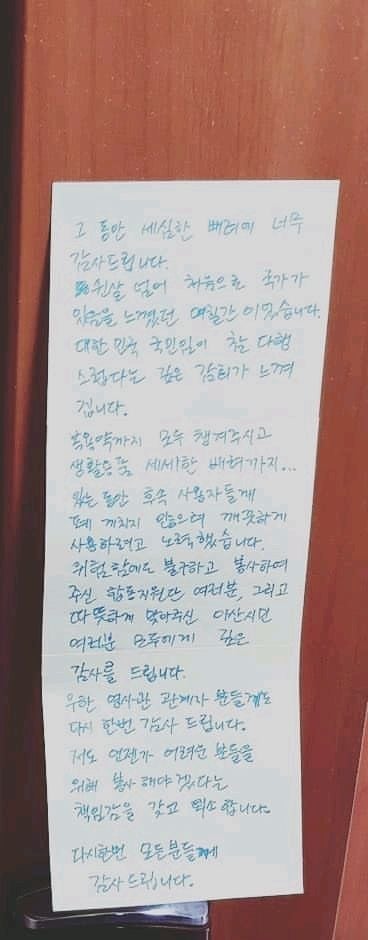 그 동안 세심한 배려에 너무
감사드립니다.
쉰살 넘어 처음으로 국가가
있음을 느꼈던 며칠간 이었습니다.
대한민국 국민임이 참 다행
스럽다는 깊은 감회가 느껴
집니다.
복용약까지 모두 챙겨주시고
생활용품 세세한 배려까지...
있는 동안 후속 사용자들께
폐 끼치지 않으며 깨끗하게
사용하려고 노력했습니다.
위험함에도 불구하고 봉사하여
주신 합동지원단 여러분, 그리고
따뜻하게 맞아주신 아산시민
여러분 모두에게 깊은
감사를 드립니다.
우한 영사관 관계자 분들께도
다시 한번 감사 드립니다.
저도 언젠가 어려운 분들을
위해 봉사 해야 겠다는
책임감을 갖고 퇴소 합니다.
다시한번 모든분들께
감사 드립니다.